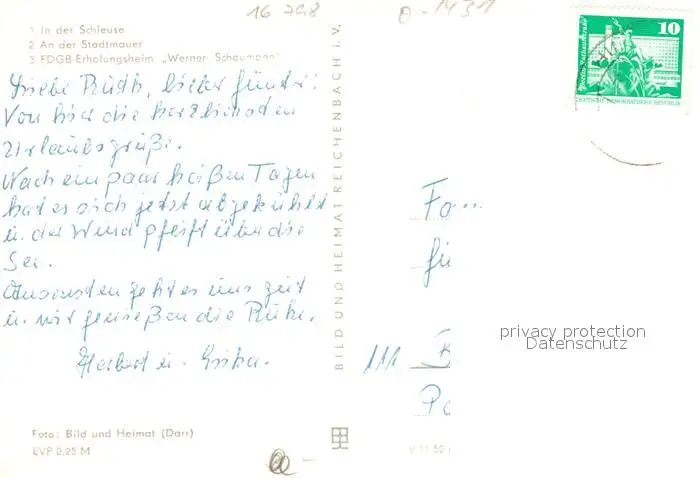 16 7918
o-1431
1 In der Schleuse
2 An der Stadtmauer
3 FDGB-Erholungsheim „Werner Schaumann"
10
Berlin-Rathausstraße
DEUTSCHE DEMOKRATISCHE REPUBLIK
Liebe Ruth, lieber Günter!
Von hier die herzlichsten
Urlaubsgrüße.
Nach ein paar heißen Tagen
hat es sich jetzt abgekühlt
u. der Wind pfeift über die
See.
Ansonsten geht es uns gut
u. wir genießen die Ruhe.
Herbert u. Erika.
BILD UND HEIMAT REICHENBACH i. V.
Fa...
Gü
111
B
Po
privacy protection
Datenschutz
Foto: Bild und Heimat (Darr)
EVP 0,25 M
V 11 50